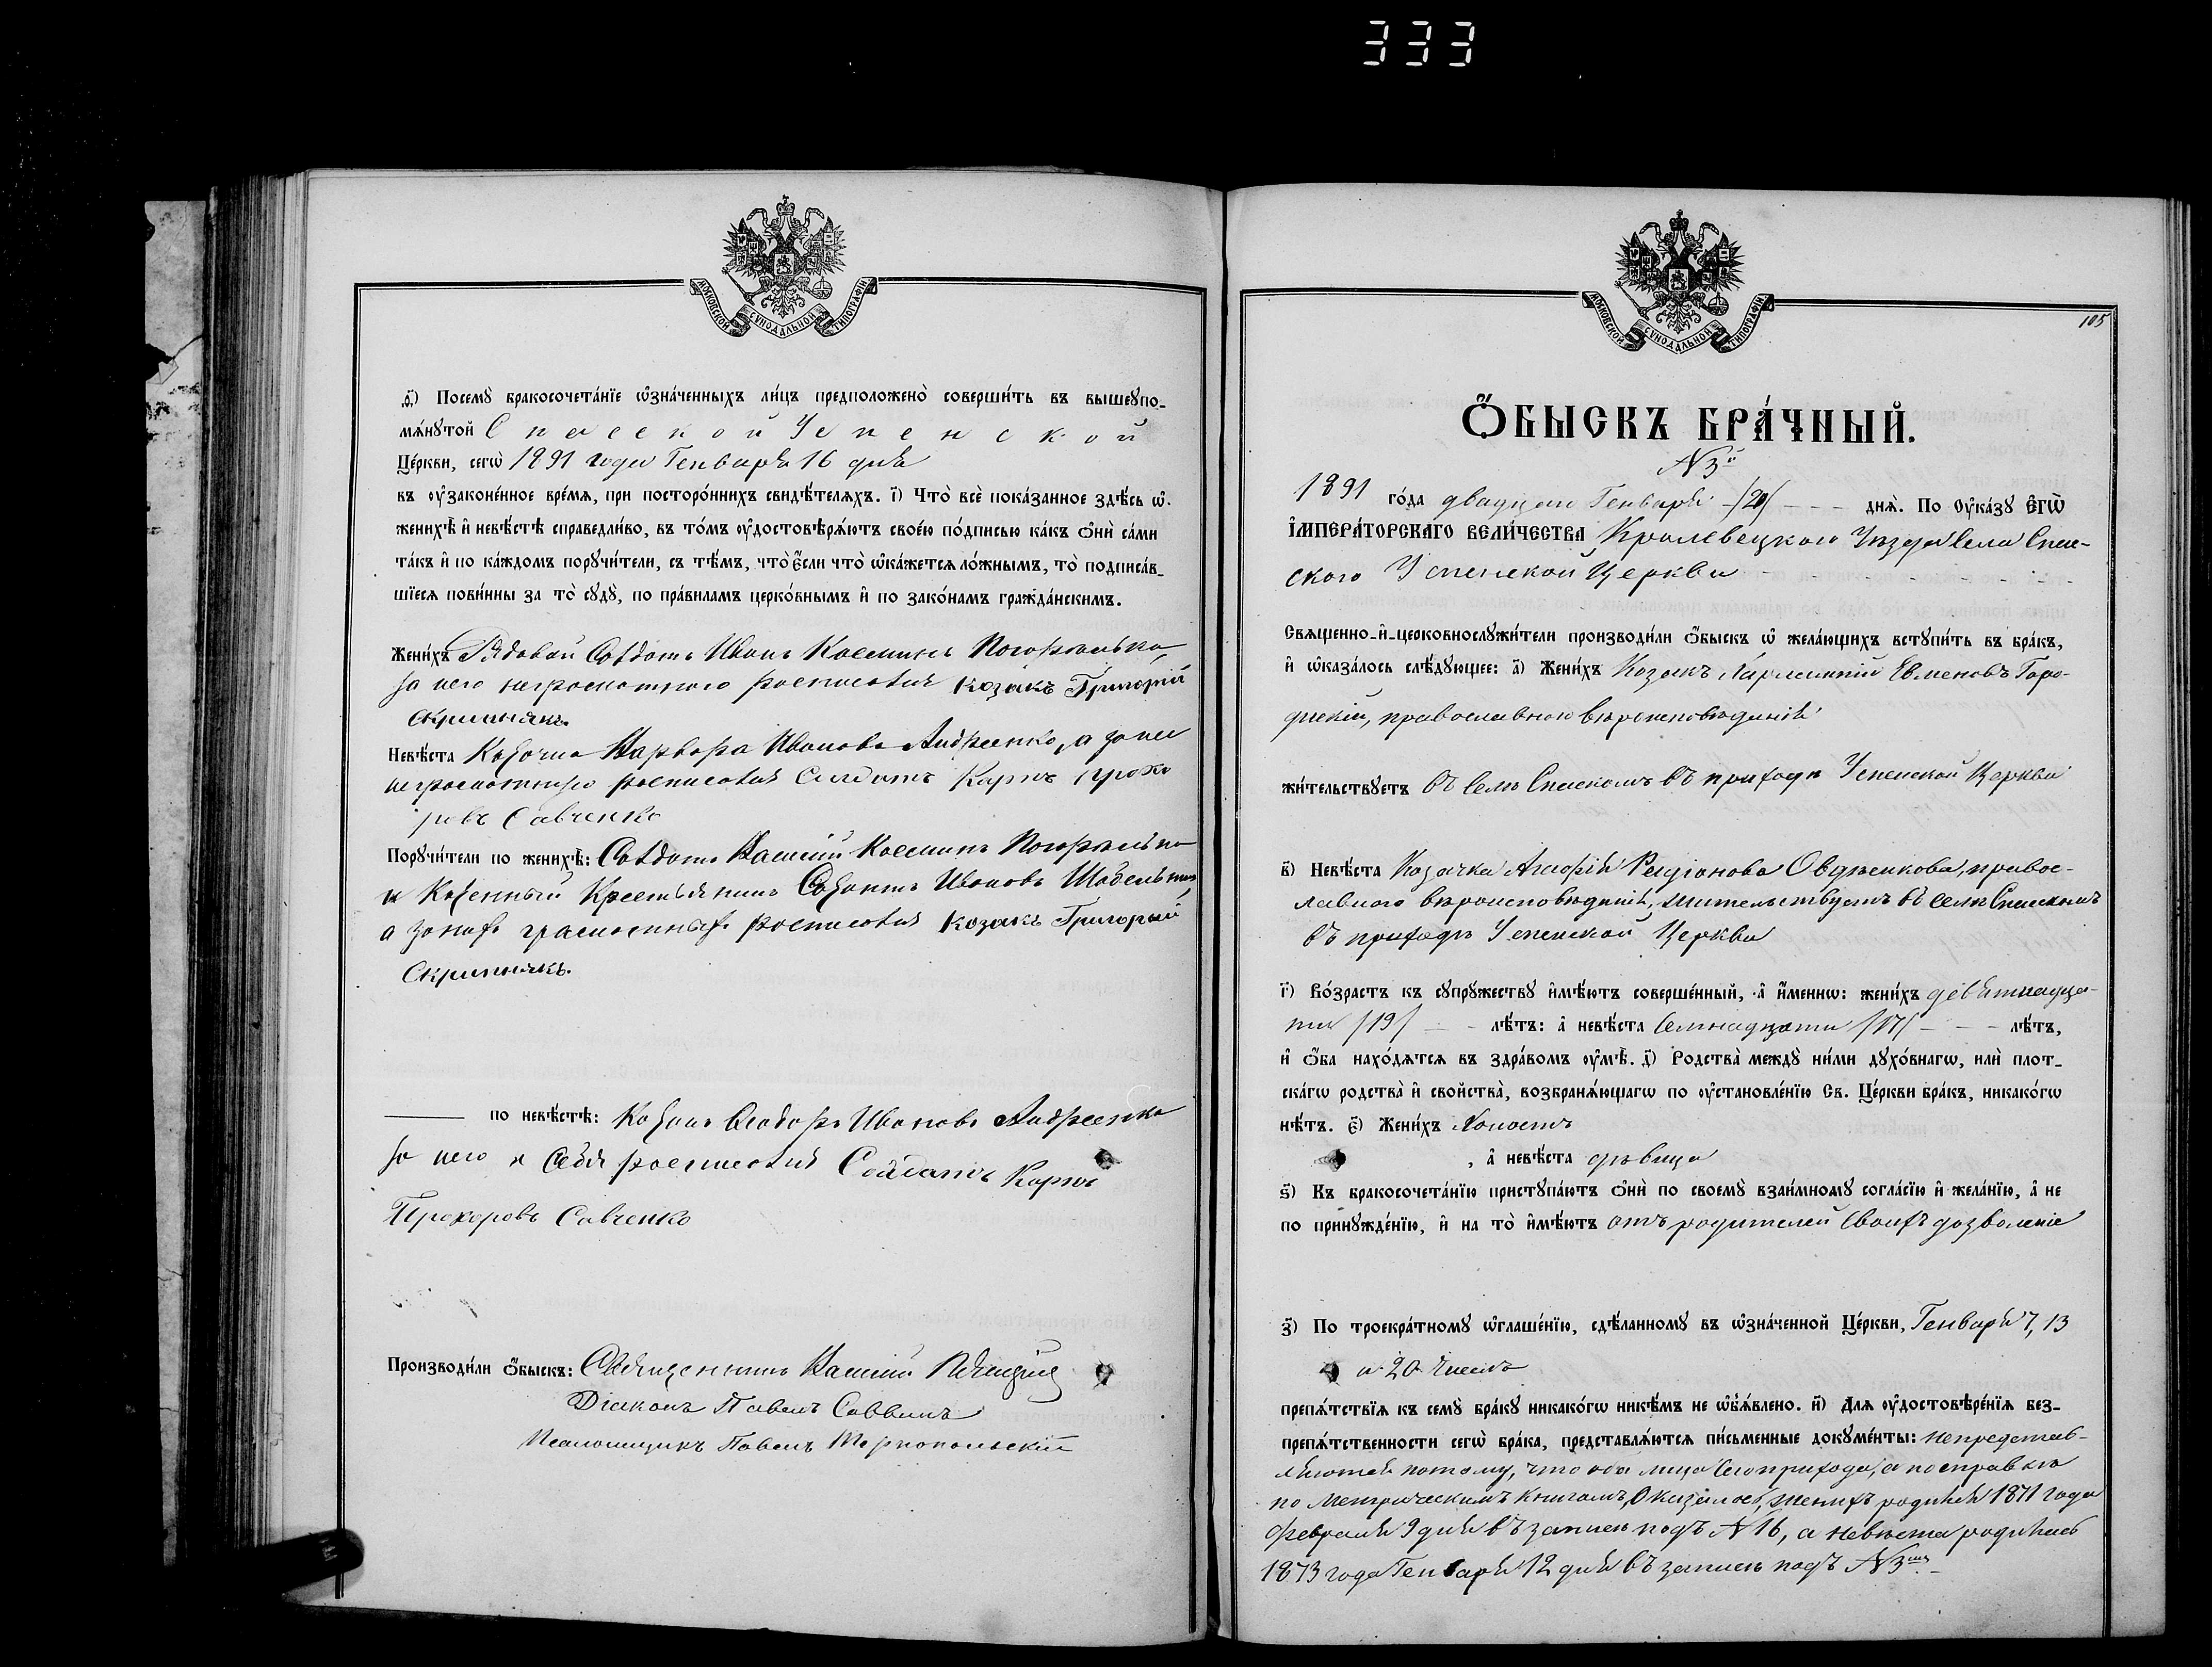 333
МОСКОВСКОЙ СѴНОДАЛЬНОЙ ТИПОГРАФІИ
ѳ҃) Посемꙋ̀ бракосочета́нїе ѡ҆зна́ченныхъ ли́цъ предположено̀ соверши́ть въ вышеꙋпо-
мѧ́нꙋтой Спасской Успенской
Це́ркви, сегѡ̀ 1891 года Генваря 16 дня
въ ᲂу҆законе́нное вре́мѧ, при посторо́ннихъ свидѣ́телѧхъ. і҃) Что̀ всѐ пока́занное здѣ́сь ѡ҆
женихѣ̀ и҆ невѣ́стѣ справедли́во, въ то́мъ ᲂу҆достовѣрѧ́ютъ свое́ю по́дписью ка́къ ѻ҆нѝ са́ми
та́къ и҆ по ка́ждомъ порꙋчи́тели, съ тѣ́мъ, что̀ є҆́сли что̀ ѡ҆ка́жетсѧ ло́жнымъ, то̀ подписа́в-
шїесѧ пови́нны за то̀ сꙋдꙋ̀, по пра́виламъ церко́внымъ и҆ по зако́намъ гражда́нскимъ.
Жени́хъ Рядовой Солдатъ Иванъ Косминъ
за него неграмотного росписался козакъ Григорій
Скрипникъ.
Невѣ́ста Варвара Иванова Андреенко, а за нея
неграмотную росписался Солдатъ Карпъ Прохо
ровъ Савченко
Порꙋчи́тели по женихѣ̀: Солдатъ Василій Косминъ
и Казенный Крестьянинъ Ивановъ
а за нихъ грамотныхъ росписался козакъ Григорій
Скрипникъ.
по невѣ́стѣ: Козакъ Ѳеодоръ Ивановъ Андреенко
за него и себя росписался Солдатъ Карпъ
Прохоровъ Савченко
Производи́ли ѻ҆́быскъ: Священникъ Василій
Діаконъ Павелъ Саввинъ
Псаломщикъ Павелъ Тернопольскій
МОСКОВСКОЙ СѴНОДАЛЬНОЙ ТИПОГРАФІИ
105
Ѻ҆́БЫСКЪ БРА́ЧНЫЙ.
N 3й
1891 го́да двадцати Генваря /20/ днѧ̀. По Оу҆ка́зꙋ Є҆ГѠ̀
І҆МПЕРА́ТОРСКАГО ВЕЛИ́ЧЕСТВА Кролевецкого Уѣзда Села Спас-
ского Успенской Церкви
Свѧщенно-и҆-церковнослꙋжи́тели производи́ли ѻ҆́быскъ ѡ҆ жела́ющихъ встꙋпи́ть въ бра́къ,
и҆ ѡ҆каза́лось слѣ́дꙋющее: а҃) Жени́хъ Козакъ Харлампій Евменовъ Горо-
дискій, православного вѣроисповѣданія
жи́тельствꙋетъ въ селѣ Спаскомъ въ приходѣ Успенской Церкви
в҃) Невѣ́ста Козачка Агафія Родіонова Овдѣенкова, правос-
лавного вѣроисповѣданія, жительствуетъ въ селѣ Спаскомъ
въ приходѣ Успенской Церкви
г҃) Во́зрастъ къ сꙋпрꙋжествꙋ и҆мѣ́ютъ соверше́нный, а҆ и҆́меннѡ: жени́хъ девятнадца-
ти /19/ лѣ́тъ: а҆ невѣ́ста семнадцати /17/ лѣ́тъ,
и҆ ѻ҆́ба нахо́дѧтсѧ въ здра́вомъ ᲂу҆мѣ̀. д҃) Родства̀ междꙋ̀ ни́ми дꙋхо́внагѡ, илѝ плот-
ска́гѡ родства̀ и҆ свойства̀, возбранѧ́ющагѡ по ᲂу҆становле́нїю Св. Це́ркви бра́къ, никако́гѡ
нѣ́тъ. є҃) Жени́хъ Холостъ
, а҆ невѣ́ста дѣвица
ѕ҃) Къ бракосочета́нїю пристꙋпа́ютъ ѻ҆нѝ по своемꙋ̀ взаи́мномꙋ согла́сїю и҆ жела́нїю, а҆ не
по принꙋжде́нїю, и҆ на то̀ и҆мѣ́ютъ отъ родителей своихъ дозволеніе
з҃) По троекра́тномꙋ ѡ҆глаше́нїю, сдѣ́ланномꙋ въ ѡ҆зна́ченной Це́ркви, Генваря 7, 13
и 20 чиселъ
препѧ́тствїѧ къ семꙋ̀ бра́кꙋ никако́гѡ никѣ́мъ не ѡ҆б̾ѧ́влено. и҃) Длѧ ᲂу҆достовѣре́нїѧ без-
препѧ́тственности сегѡ̀ бра́ка, представлѧ́ютсѧ пи́сьменные докꙋме́нты: непредстав-
ляются потому, что оба лица сего прихода, а по справкѣ
по Метрическимъ книгамъ, Оказалось, женихъ родился 1871 года
Февраля 9 дня въ записи подъ N 16, а невѣста родилась
1873 года Генваря 12 дня въ записи подъ N 3мъ